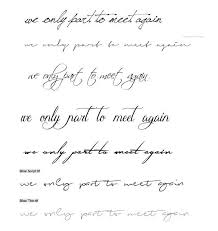 we only part to meet again
we only part to meet again
we only part to meet again
we only part to meet again
we only part to meet again
we only part to meet again
we only part to meet again